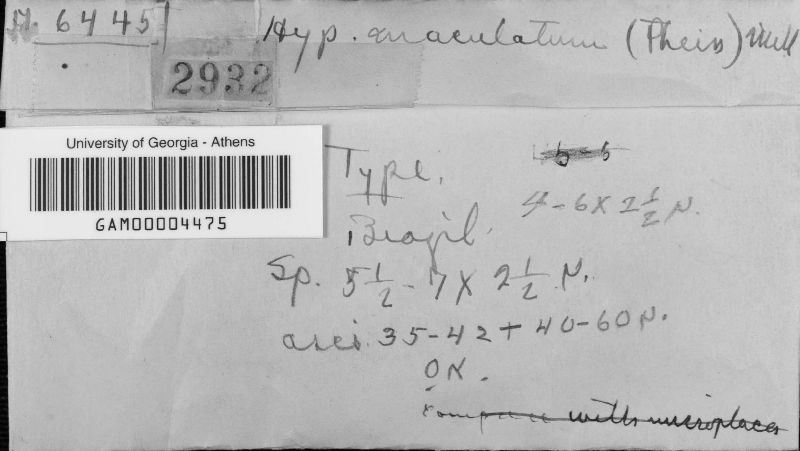 M. 6445
Hyp. maculatum (Theiss) Mill
2932
University of Georgia - Athens
GAM00004475
Type.
5-6
4-6 X 2 1/2 µ.
Brazil.
Sp. 5 1/2 - 7 X 2 1/2 µ.
asci 35-42 + 40-60 µ.
OK.
compare with microplaces